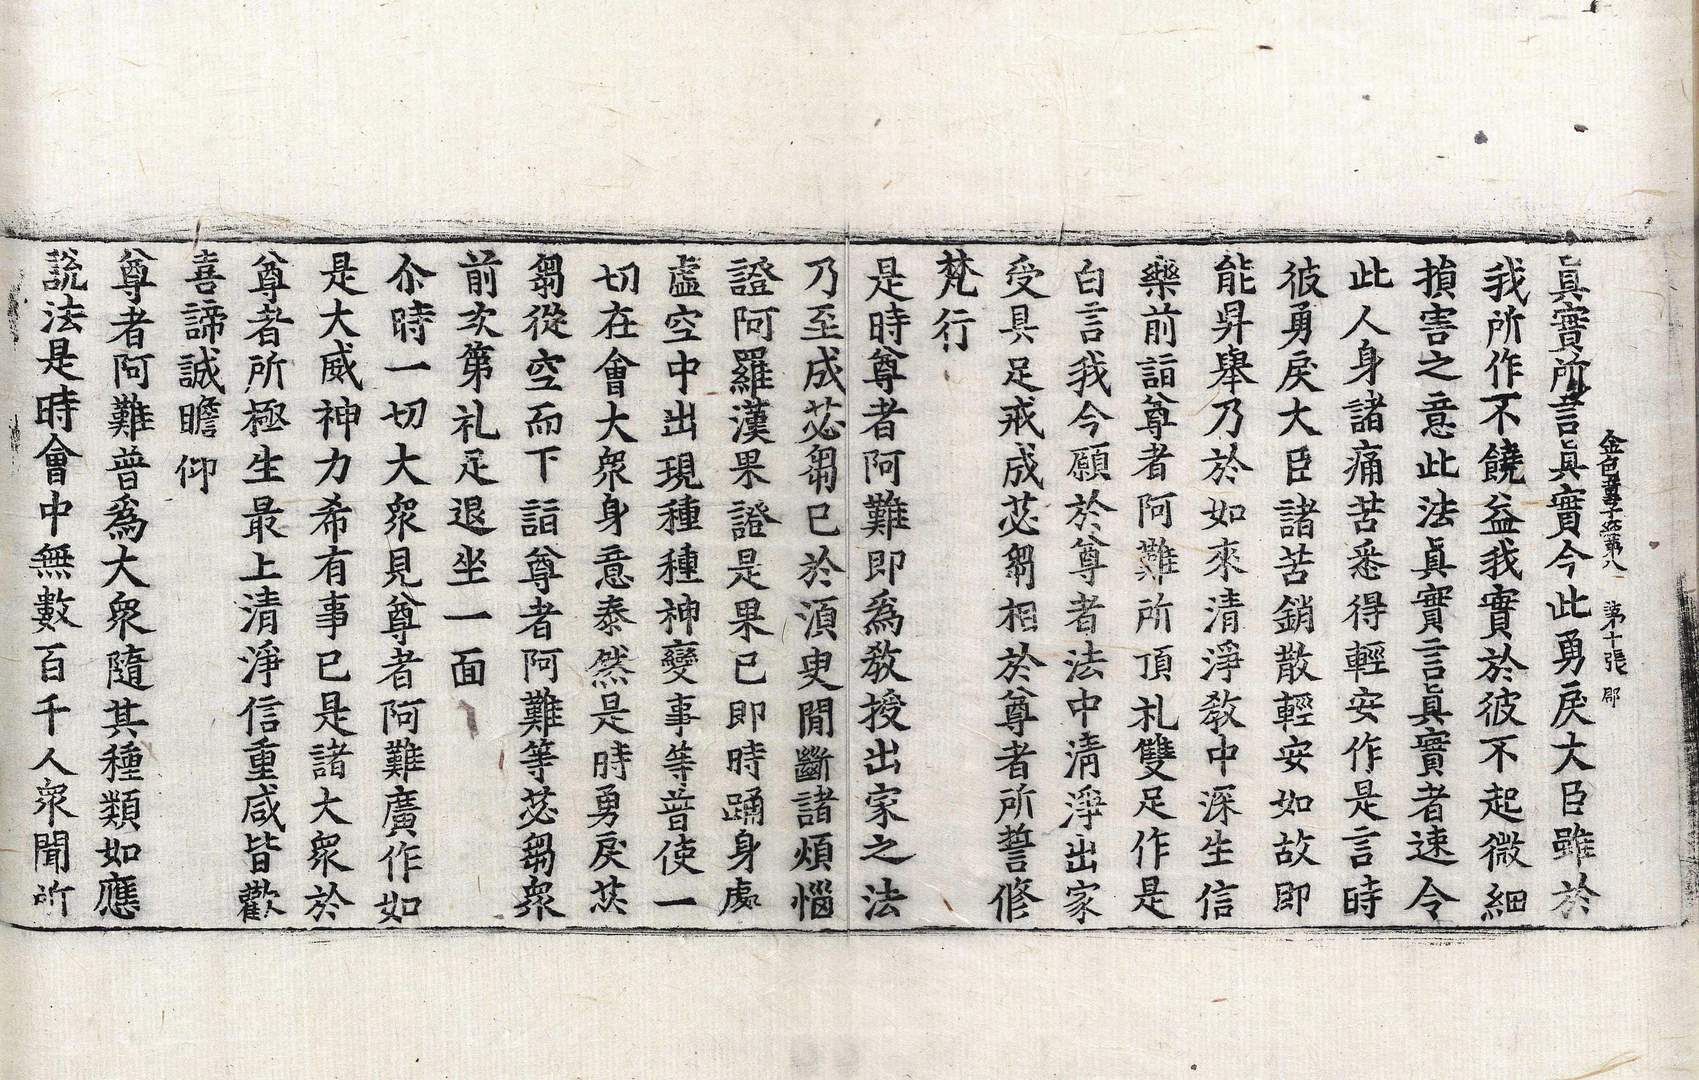 金色童子經第八　第十張　郡
眞實所言眞實今此勇戾大臣雖於
我所作不饒益我實於彼不起微細
損害之意此法眞實言眞實者速令
此人身諸痛苦悉得輕安作是言時
彼勇戾大臣諸苦銷散輕安如故即
能昇舉乃於如來清淨教中深生信
藥前詣尊者阿難所頂礼雙足作是
白言我今願於尊者法中清淨出家
受具足戒成苾芻相於尊者所誓修
梵行
是時尊者阿難即爲教授出家之法
乃至成苾芻已於須臾間斷諸煩惱
證阿羅漢果證是果已即時踊身處
虛空中出現種種神變事等普使一
切在會大衆身意泰然是時勇戾苾
芻從空而下詣尊者阿難等苾芻衆
前次第礼足退坐一面
尒時一切大衆見尊者阿難廣作如
是大威神力希有事已是諸大衆於
尊者所極生最上清淨信重咸皆歡
喜諦誠瞻仰
尊者阿難普爲大衆隨其種類如應
說法是時會中無數百千人衆聞所